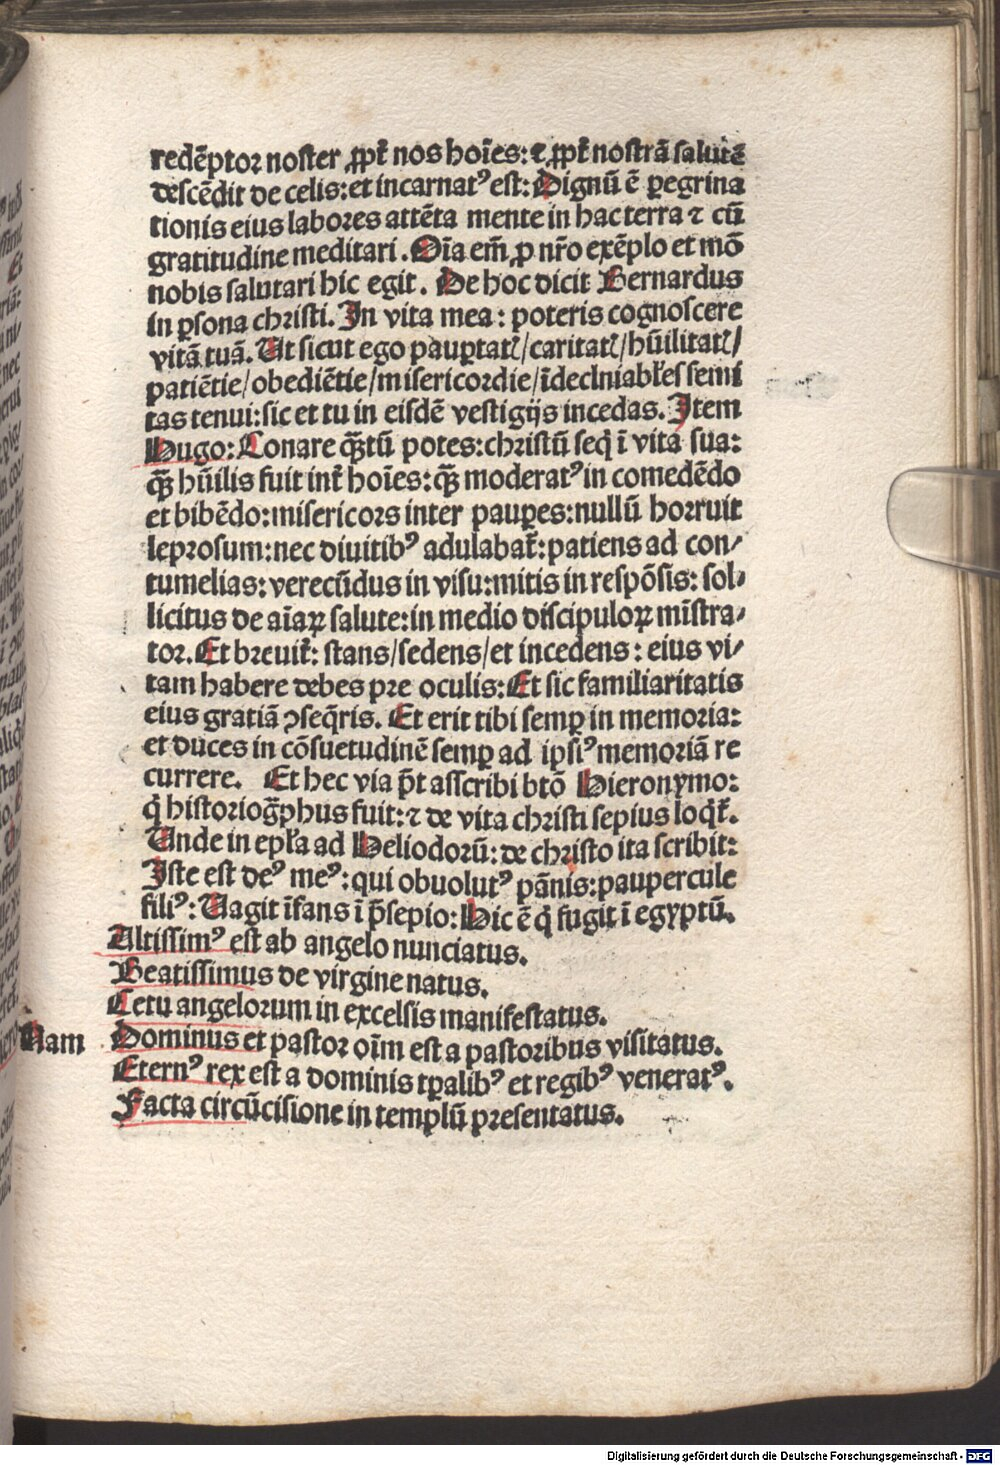 redēptor noster ꝓpt̄ nos hoīes: ⁊ ꝓpt̄ nostrā salutē
descēdit de celis: et incarnatꝰ est: Dignū ē ꝑegrina
tionis eius labores attēta mente in hac terra ⁊ cū
gratitudine meditari. Oīa em̄ ꝓ nr̄o exēplo et mō
nobis salutari hic egit. De hoc dicit Bernardus
in ꝑsona christi. In vita mea: poteris cognoscere
vitā tuā. Ut sicut ego pauꝑtatꝭ/caritatꝭ/hūilitatꝭ/
patiētie/obediētie/misericordie/īdeclniabl̄es semi
tas tenui: sic et tu in eisdē vestigijs incedas. Item
Hugo: Conare qȝ̄tū potes: christū seq̄ ī vita sua:
qȝ̄ hūilis fuit int̄ hoīes: qȝ̄ moderatꝰ in comedēdo
et bibēdo: misericors inter pauꝑes: nullū horruit
leprosum: nec diuitibꝰ adulabat̄: patiens ad con⸗
tumelias: verecūdus in visu: mitis in respōsis: sol⸗
licitus de aīaꝝ salute: in medio discipuloꝝ mīstra⸗
tor. Et breuit̄: stans/sedens/et incedens: eius vi⸗
tam habere debes pre oculis: Et sic familiaritatis
eius gratiā ↄseq̄ris. Et erit tibi semꝑ in memoria:
et duces in cōsuetudinē semꝑ ad ipsiꝰ memoriā re
currere. Et hec via p̄t asscribi btō Hieronymo:
q̄ historioḡphus fuit: ⁊ de vita christi sepius loq̄t̄.
Unde in epl̄a ad Heliodorū: de christo ita scribit:
Iste est deꝰ meꝰ: qui obuolutꝰ pānis: paupercule
filiꝰ: Uagit īfans ī p̄sepio: Hic ē q̄ fugit ī egyptū.
Altissimꝰ est ab angelo nunciatus.
Beatissimus de virgine natus.
Cetu angelorum in excelsis manifestatus.
Nam Dominus et pastor oīm est a pastoribus visitatus.
Eternꝰ rex est a dominis tꝑalibꝰ et regibꝰ veneratꝰ.
Facta circūcisione in templū presentatus.
Digitalisierung gefördert durch die Deutsche Forschungsgemeinschaft - DFG